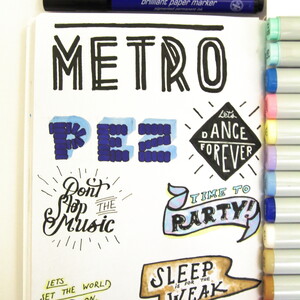 brilliant paper marker
METRO
PEZ
LET'S
DANCE
FOREVER
Don't
Stop
THE
Music
TIME TO
PARTY!
LETS
SET THE WORLD
ON
SLEEP
IS FOR THE
WEAK